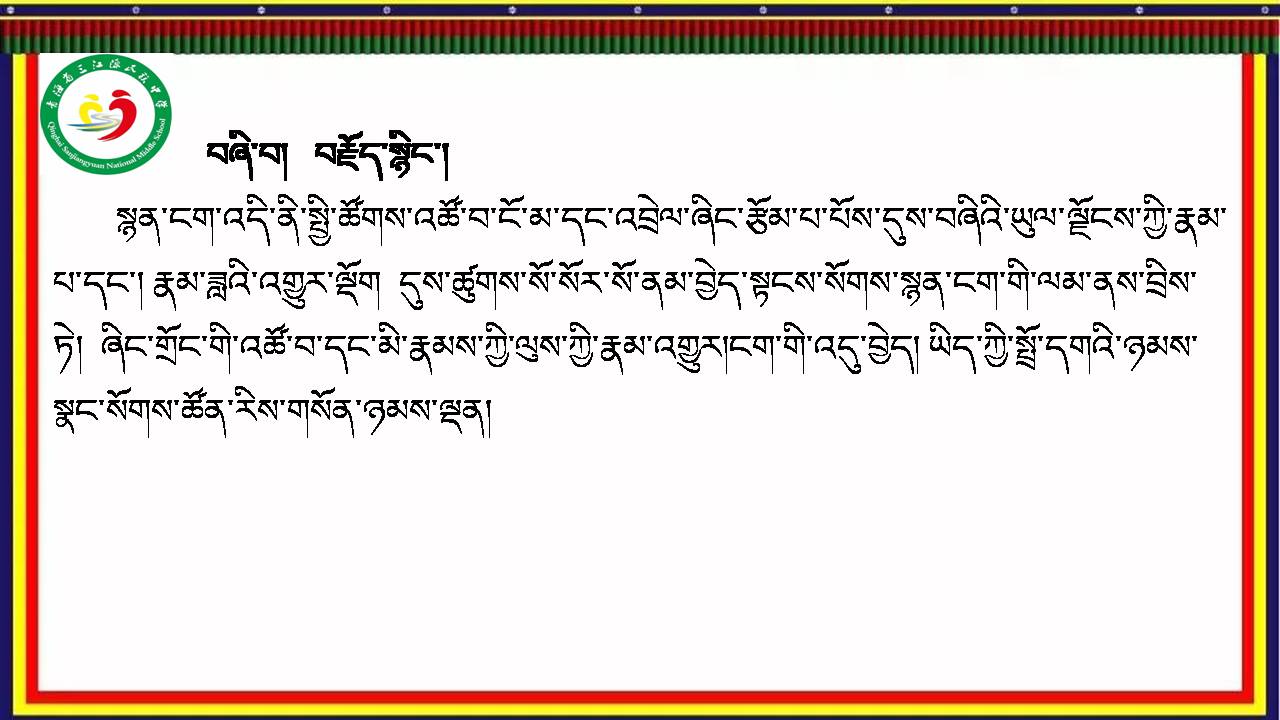 青海省三江源民族中学
Qinghai Sanjiangyuan National Middle School
བཞི་བ། བརྗོད་སྙིང་།
སྙན་ངག་འདི་ནི་སྤྱི་ཚོགས་འཚོ་བ་ངོ་མ་དང་འབྲེལ་ཞིང་རྩོམ་པ་པོས་དུས་བཞིའི་ཡུལ་ལྗོངས་ཀྱི་རྣམ་
པ་དང་། རྣམ་ཟླའི་འགྱུར་ལྡོག དུས་ཚུགས་སོ་སོར་སོ་ནམ་བྱེད་སྟངས་སོགས་སྙན་ངག་གི་ལམ་ནས་བྲིས་
ཏེ། ཞིང་གྲོང་གི་འཚོ་བ་དང་མི་རྣམས་ཀྱི་ལུས་ཀྱི་རྣམ་འགྱུར།ངག་གི་འདུ་བྱེད། ཡིད་ཀྱི་སྤྲོ་དགའི་ཉམས་
སྣང་སོགས་ཚོན་རིས་གསོན་ཉམས་ལྡན།